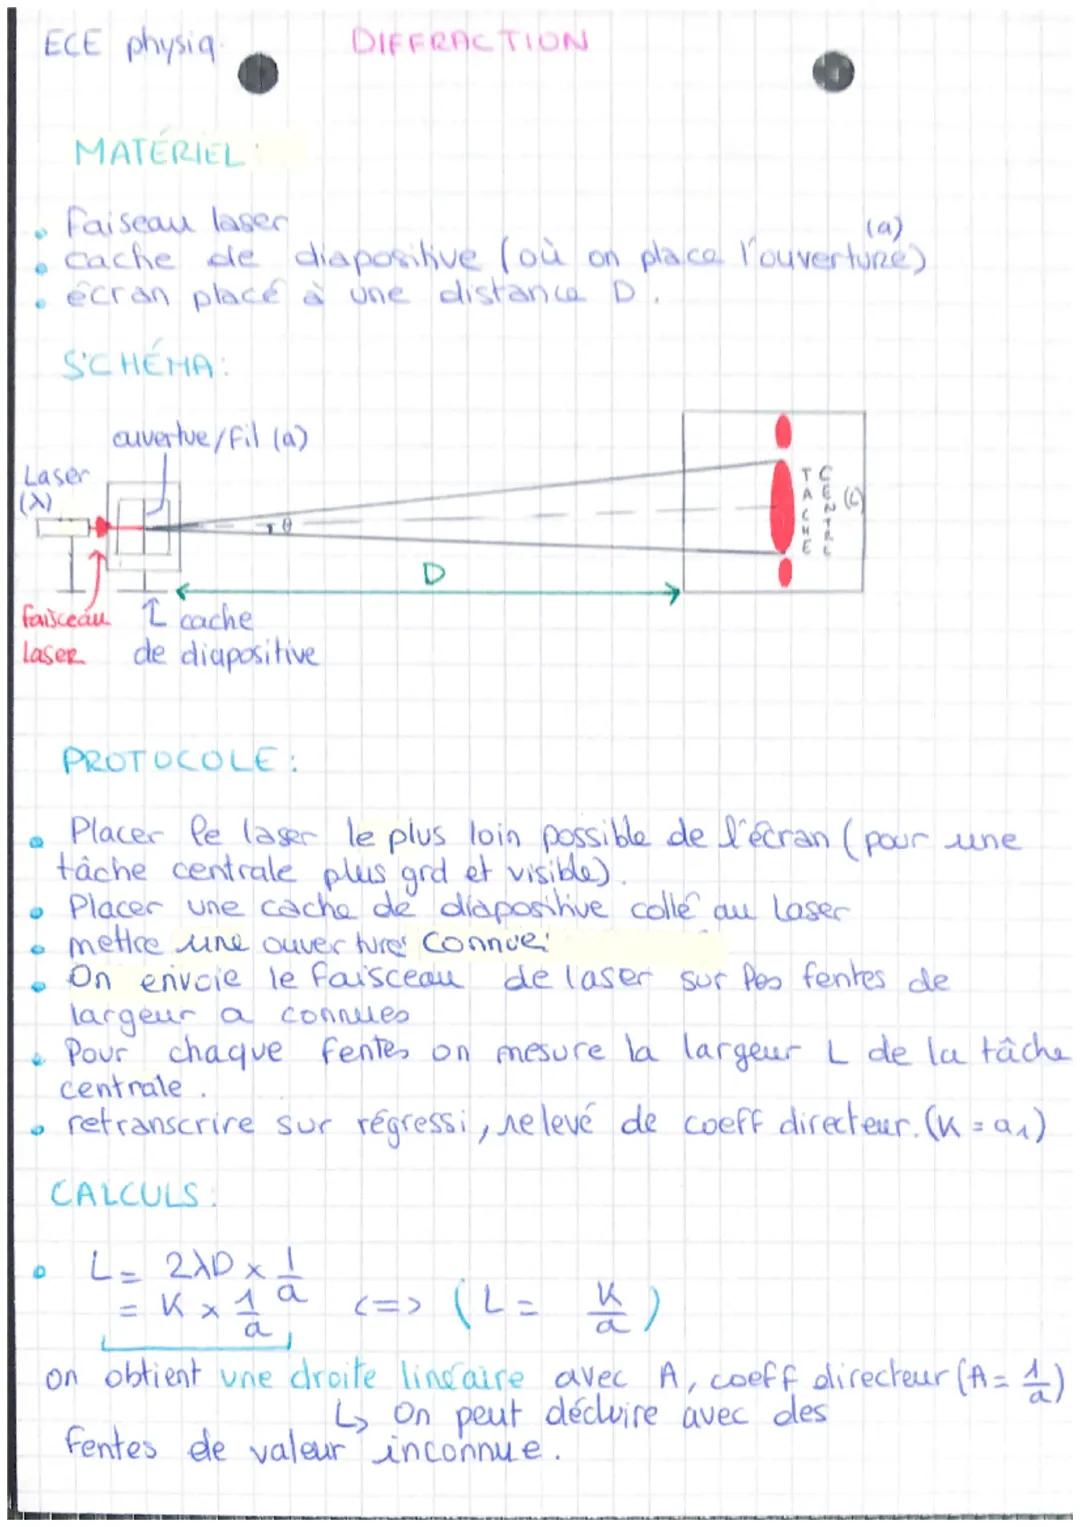 ECE physiq. DIFFRACTION
MATÉRIEL:
• faiseau laser
• cache de diapositive (où on place l'ouverture) (a)
• écran placé à une distance D.
SCHÉMA:
ouvertue/fil (a)
Laser
(λ)
θ
TACHE
CENTRL
(L)
D
faisceau
laser
cache
de diapositive
PROTOCOLE:
• Placer le laser le plus loin possible de l'écran (pour une
tâche centrale plus grd et visible).
• Placer une cache de diapositive collé au laser
• mettre une ouverture connue:
• On envoie le faisceau de laser sur les fentes de
largeur a connues
• Pour chaque fentes on mesure la largeur L de la tâche
centrale.
• retranscrire sur régressi, relevé de coeff directeur. (K = a₁)
CALCULS:
• L = 2λD × 1/a
= K × 1/a <=> (L = K/a)
on obtient une droite linéaire avec A, coeff directeur (A = 1/a)
↳ On peut déduire avec des
fentes de valeur inconnue.